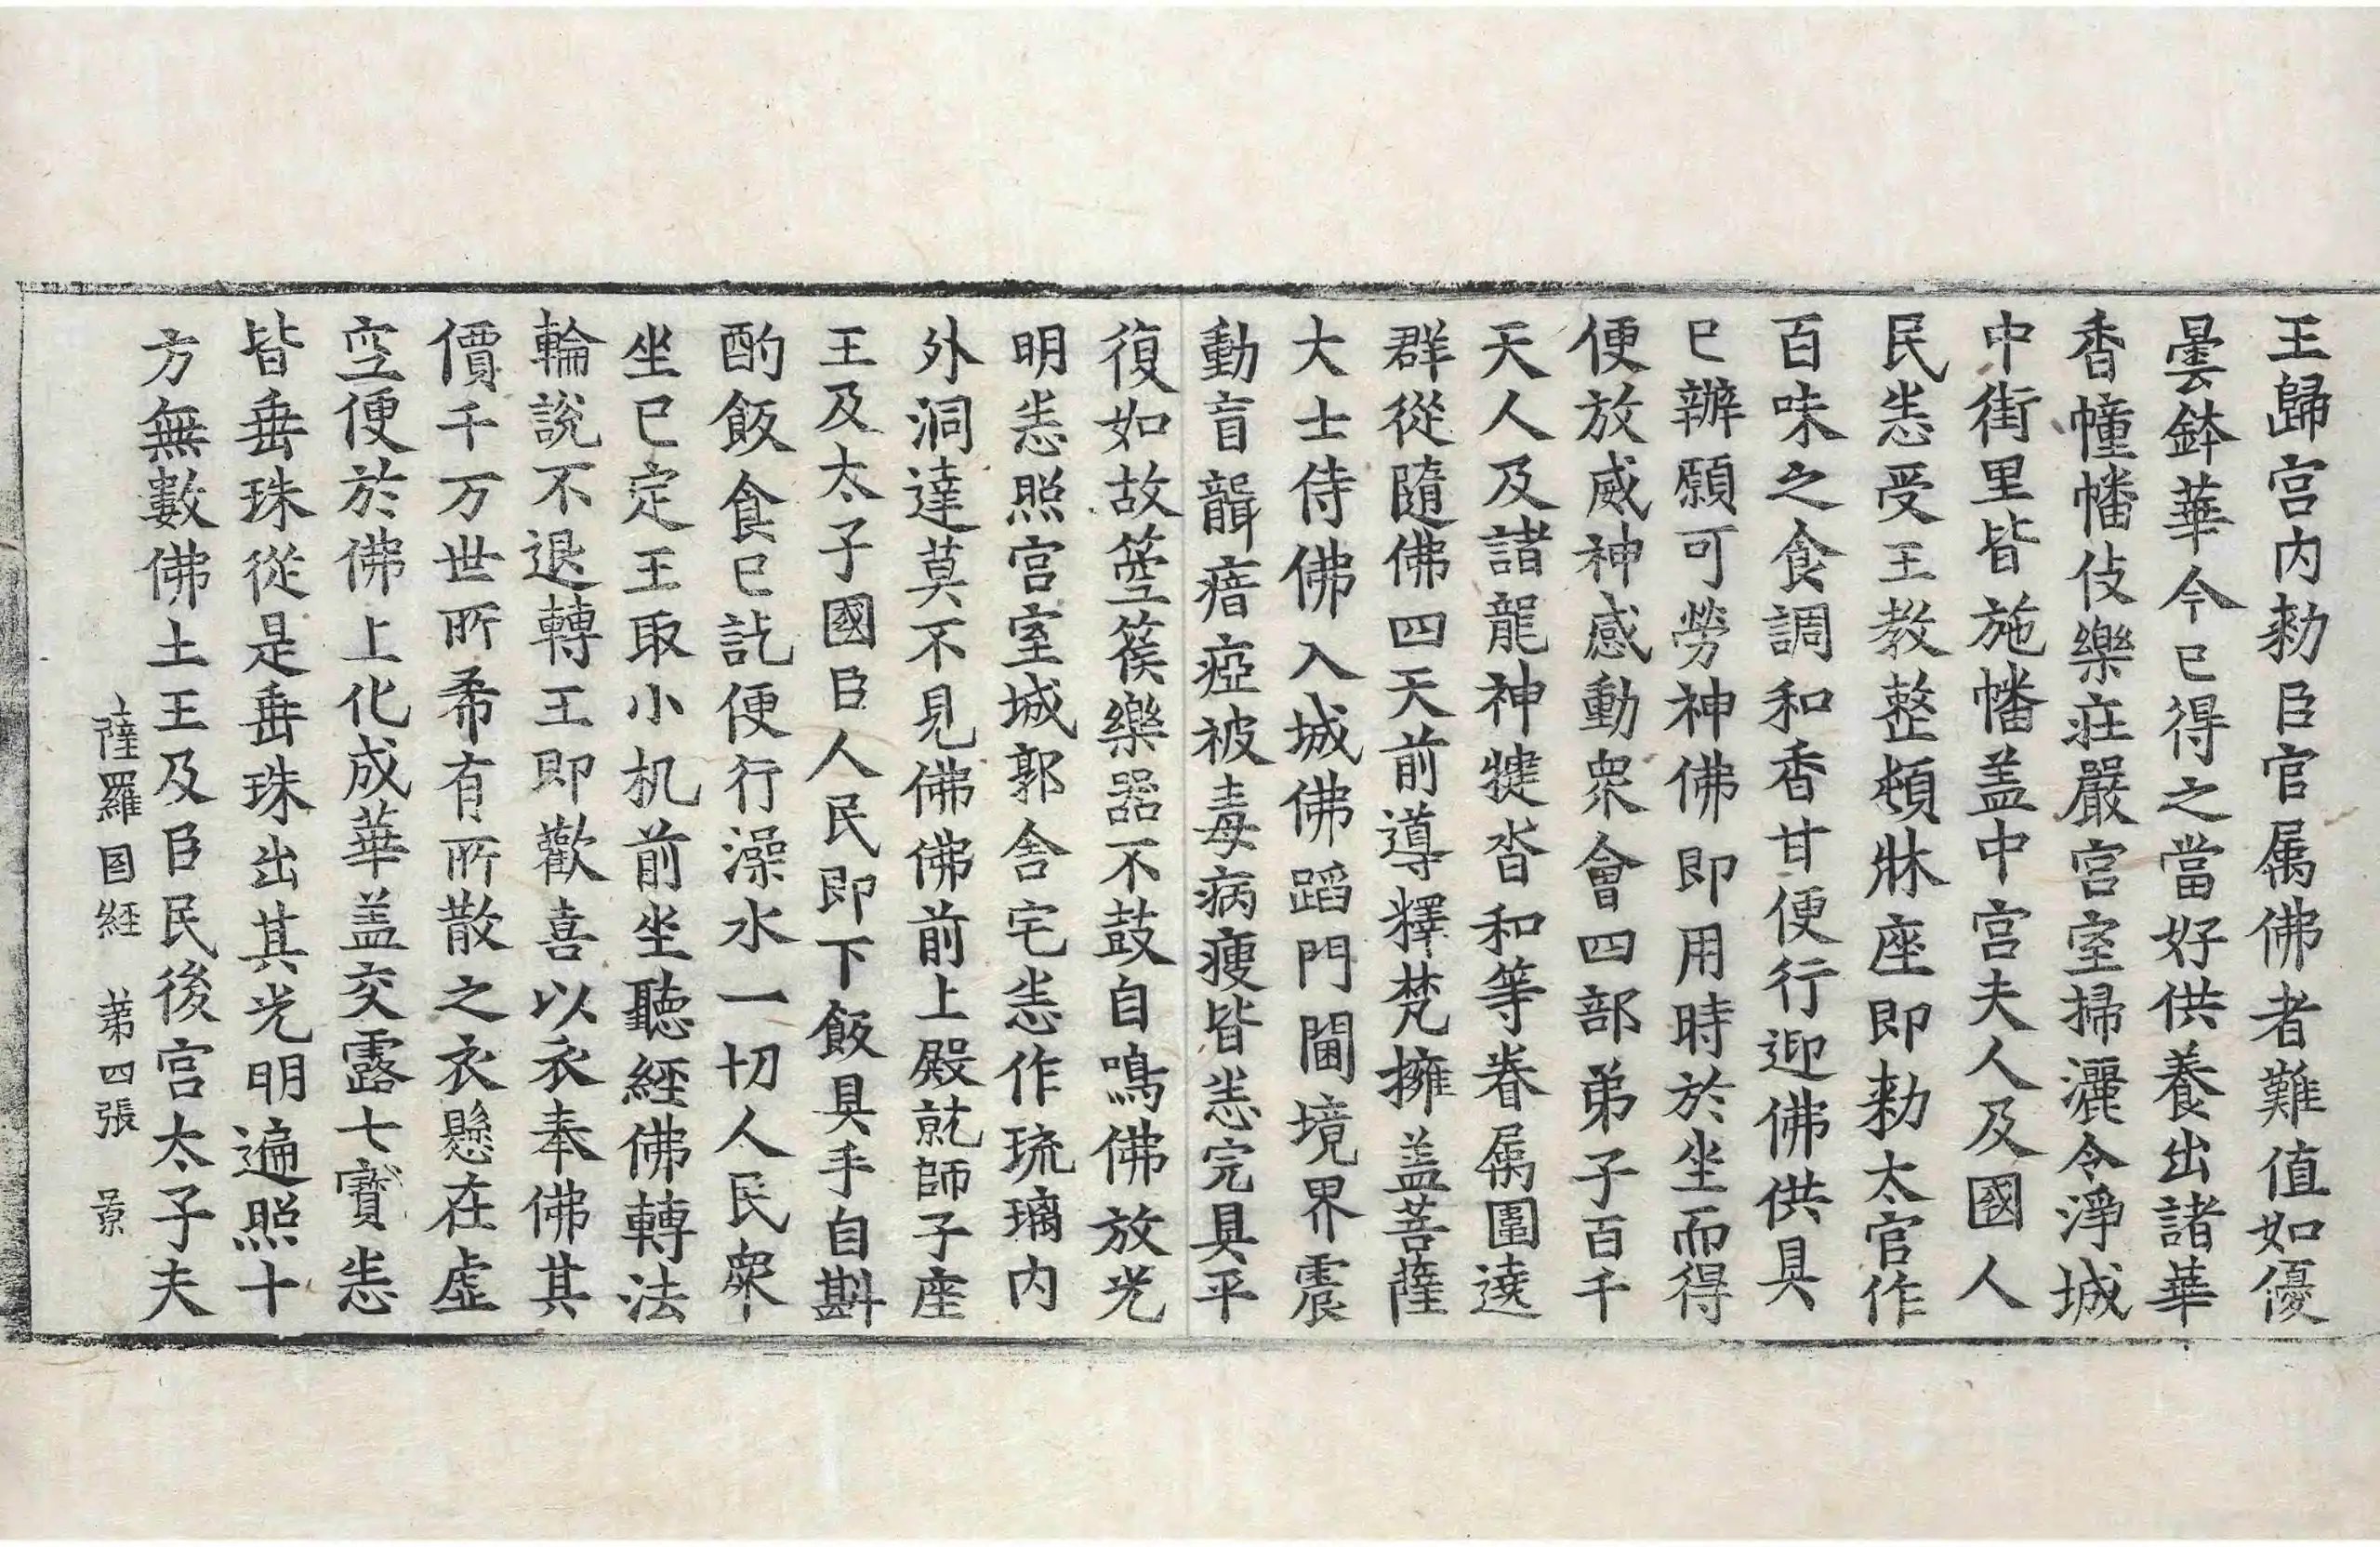 王歸宫内勑臣官属佛者難值如優
曇鉢華今已得之當好供養出諸華
香幢幡伎樂莊嚴宫室掃灑令淨城
中街里皆施幡盖中宫夫人及國人
民悉受王教整頓牀座即勑太官作
百味之食調和香甘便行迎佛供具
已辦願可勞神佛即用時於坐而得
便放威神感動衆會四部弟子百千
天人及諸龍神揵沓和等眷属圍遶
群從隨佛四天前導釋梵擁盖菩薩
大士侍佛入城佛蹈門閫境界震
動盲聾瘖瘂被毒病瘦皆悉完具平
復如故箜篌樂器不鼓自鳴佛放光
明悉照宫室城郭舍宅悉作琉璃内
外洞達莫不見佛佛前上殿就師子座
王及太子國臣人民即下飯具手自斟
酌飯食已訖便行澡水一切人民衆
坐已定王取小机前坐聽經佛轉法
輪說不退轉王即歡喜以衣奉佛其
價千万世所希有所散之衣懸在虚
空便於佛上化成華盖交露七寳悉
皆垂珠從是垂珠出其光明遍照十
方無數佛土王及臣民後宫太子夫
薩羅国経　第四張　景